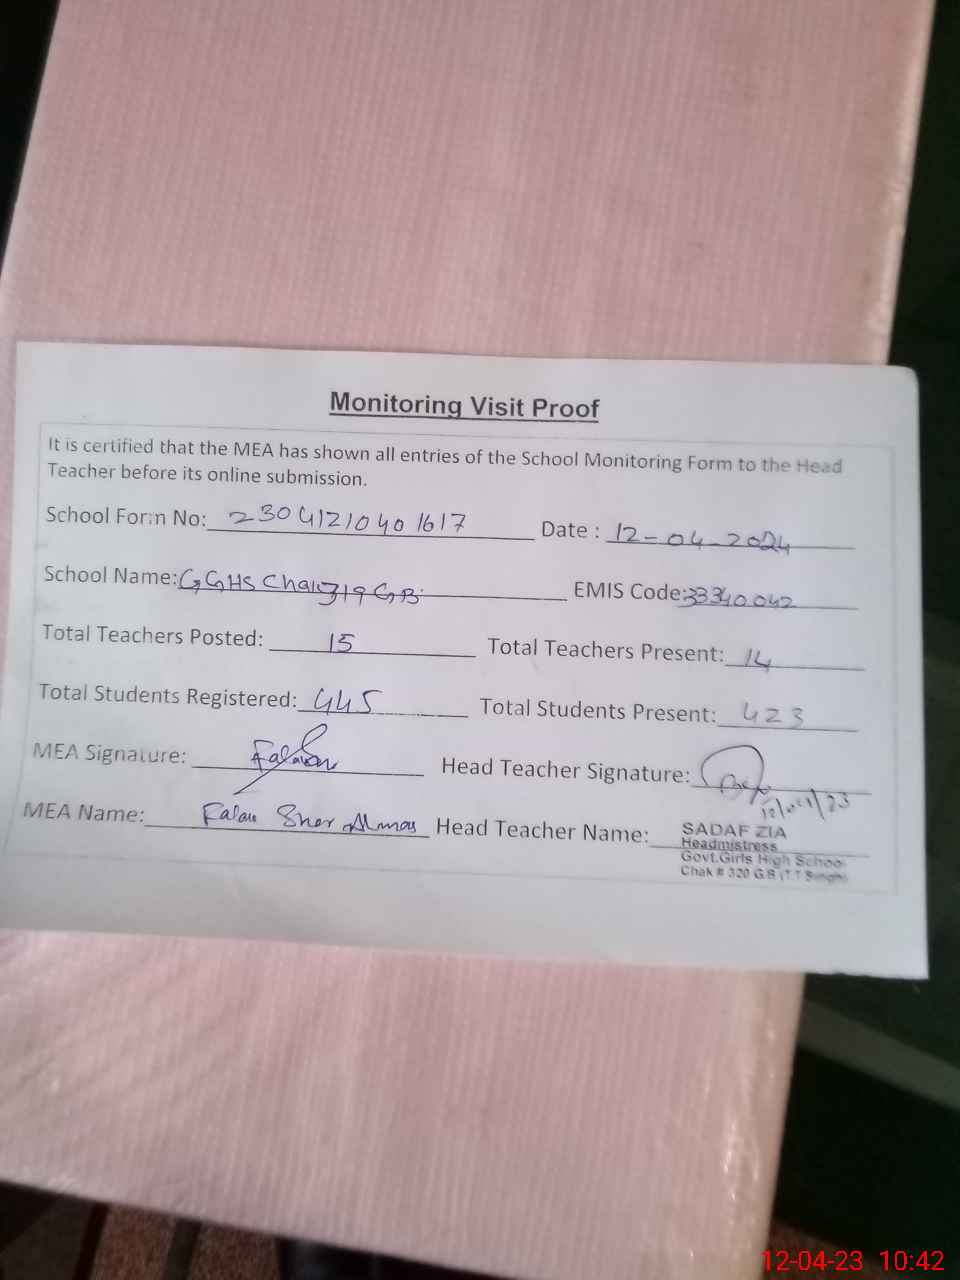 Monitoring Visit Proof
It is certified that the MEA has shown all entries of the School Monitoring Form to the Head
Teacher before its online submission.
School Form No: 2304121040 1617 Date : 12-04-2024
School Name: GGHS Chak 319 GB EMIS Code: 33340042
Total Teachers Posted: 15 Total Teachers Present: 14
Total Students Registered: 445 Total Students Present: 423
MEA Signature: Head Teacher Signature:
12/04/23
MEA Name: Sher Almas Head Teacher Name: SADAF ZIA
Headmistress
Govt.Girls High School
Chak # 320 G.B (T.T.Singh)
12-04-23 10:42